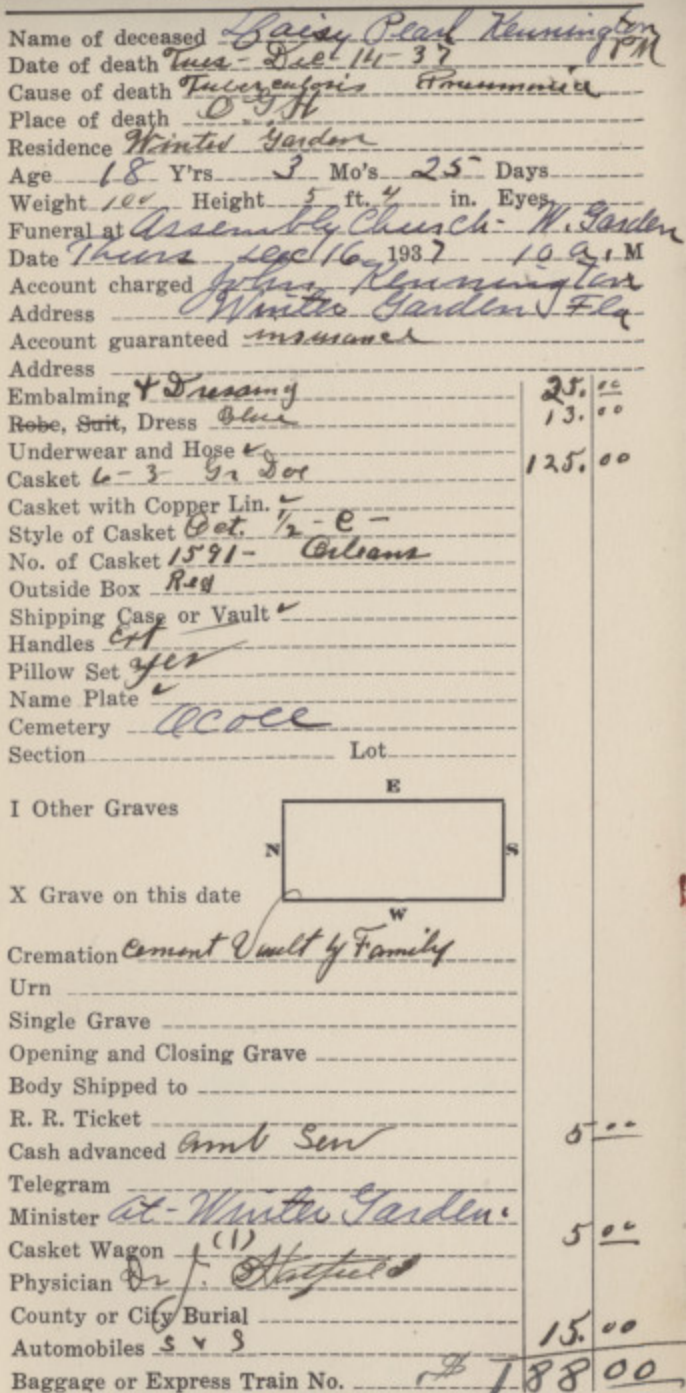 Name of deceased Daisy Pearl Kennington
Date of death Tues - Dec 14 - 37 PM
Cause of death Tuberculosis Pneumonia
Place of death O G H
Residence Winter Garden
Age 18 Y'rs 3 Mo's 25 Days
Weight 100 Height 5 ft. 4 in. Eyes
Funeral at Assembly Church - W. Garden
Date Thurs Dec 16, 1937 10 a. M
Account charged John Kennington
Address Winter Garden Fla
Account guaranteed insurance
Address
Embalming & Dressing 25.00
Robe, Suit, Dress Blue 13.00
Underwear and Hose ✓
Casket 6-3 Gr Doe 125.00
Casket with Copper Lin. ✓
Style of Casket Oct. 1/2 - C -
No. of Casket 1591 - Orleans
Outside Box Reg
Shipping Case or Vault ✓
Handles
Pillow Set yes
Name Plate ✓
Cemetery Ocoee
Section Lot
E
I Other Graves
N S
X Grave on this date
W
Cremation Cement Vault by Family
Urn
Single Grave
Opening and Closing Grave
Body Shipped to
R. R. Ticket
Cash advanced Amb Serv 5 00
Telegram
Minister at - Winter Garden.
Casket Wagon (1) 5 00
Physician Dr J. Hatfield
County or City Burial
Automobiles S & S 15.00
Baggage or Express Train No. $ 188 00